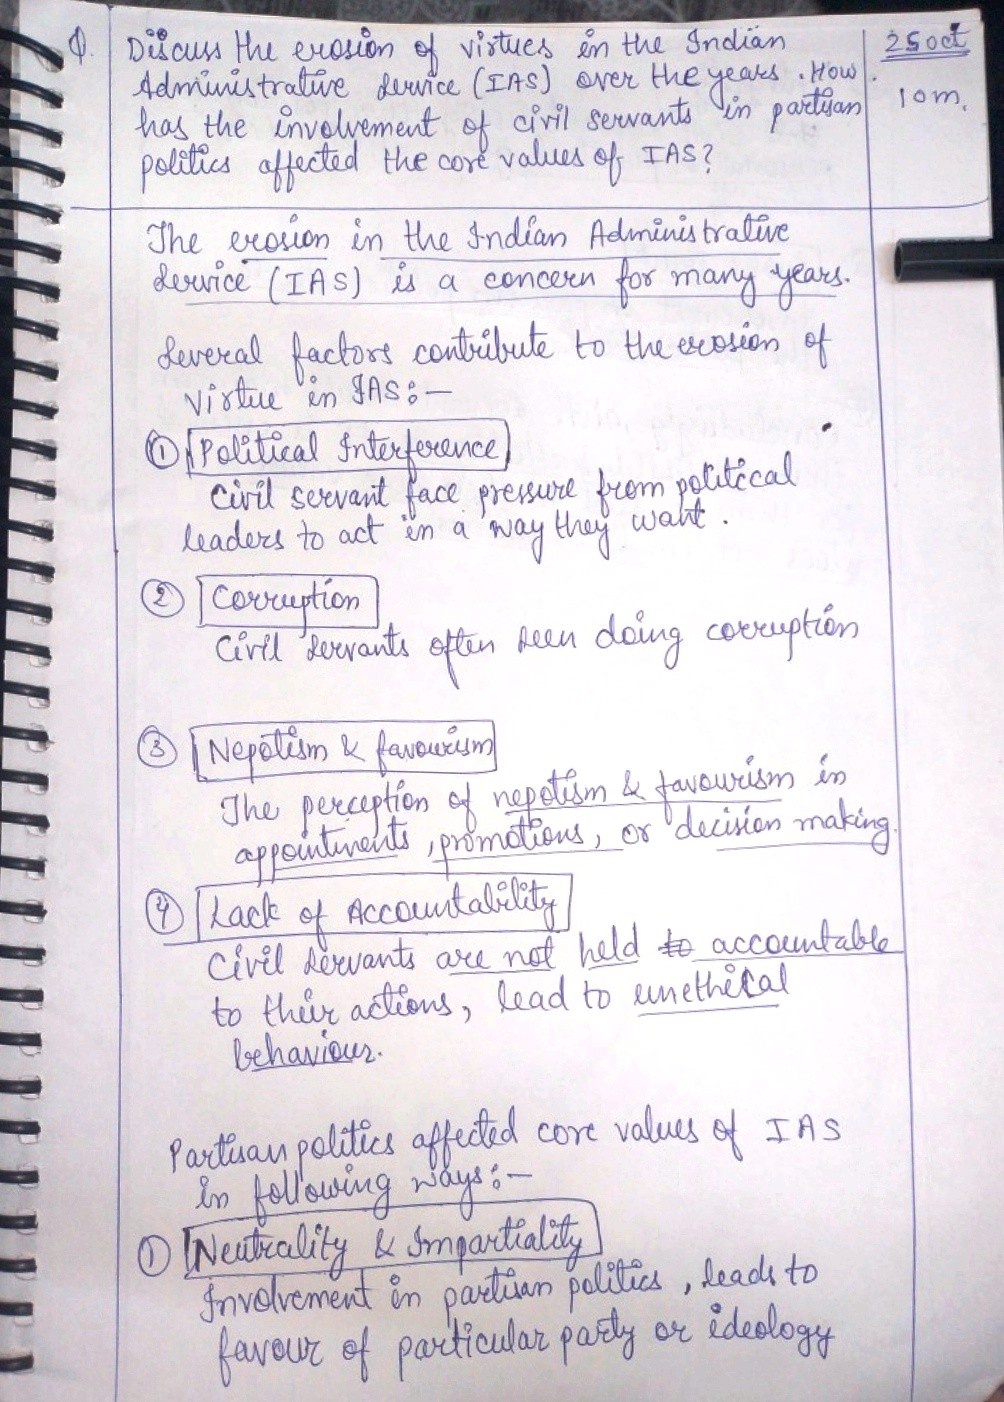 Q. Discuss the erosion of virtues in the Indian
Administrative Service (IAS) over the years. How
has the involvement of civil servants in partisan
politics affected the core values of IAS?
25 oct
10 m.
The erosion in the Indian Administrative
Service (IAS) is a concern for many years.
Several factors contribute to the erosion of
virtue in IAS:-
① Political Interference
Civil servant face pressure from political
leaders to act in a way they want.
② Corruption
Civil Servants often seen doing corruption
③ Nepotism & favourism
The perception of nepotism & favourism in
appointments, promotions, or decision making.
④ Lack of Accountability
Civil Servants are not held to accountable
to their actions, lead to unethical
behaviour.
Partisan politics affected core values of IAS
in following ways:-
① Neutrality & Impartiality
Involvement in partisan politics, leads to
favour of particular party or ideology